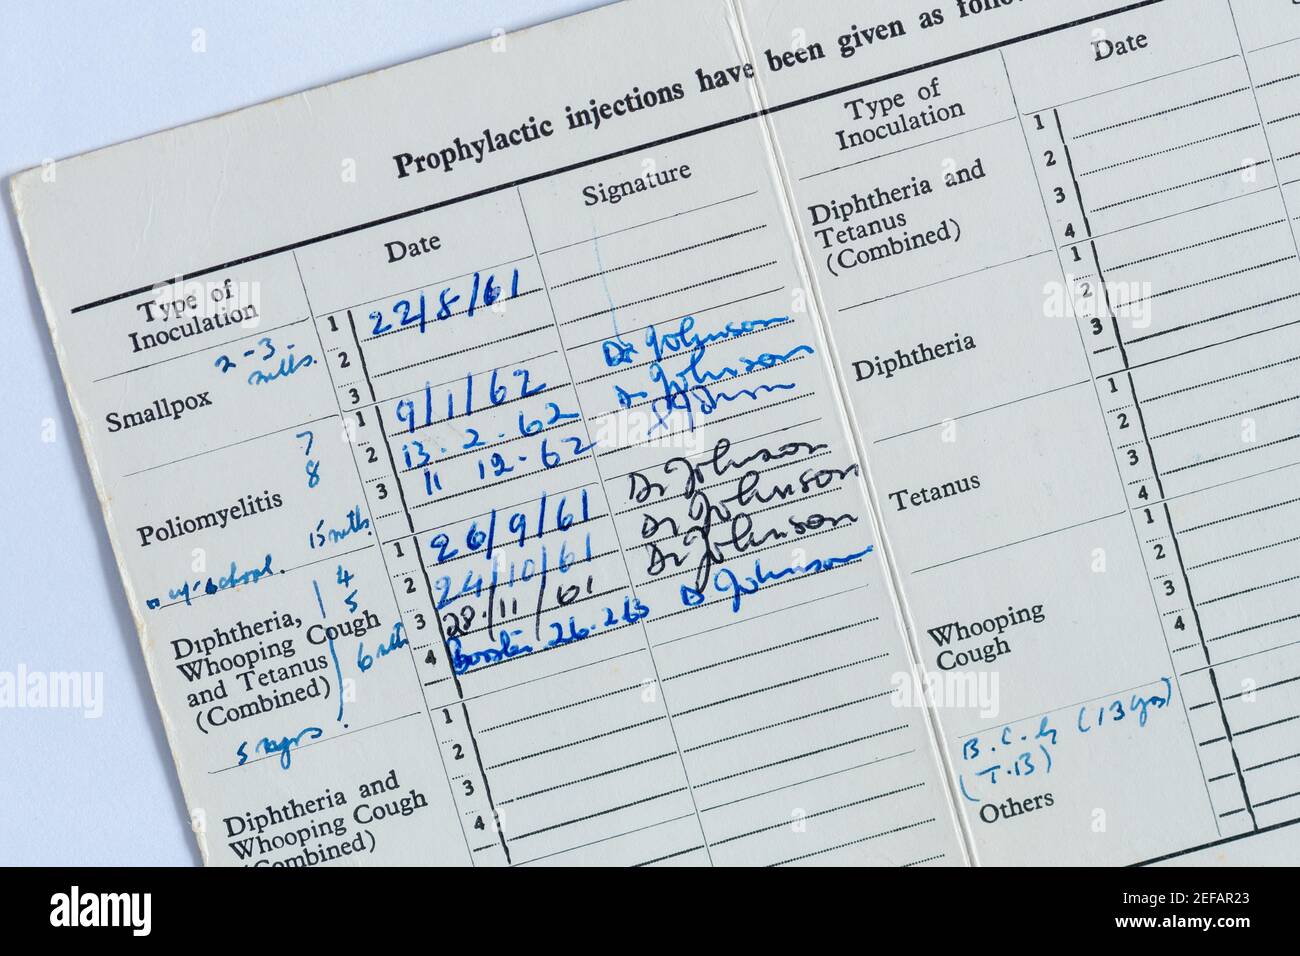 Prophylactic injections have been given as follow
Type of
Inoculation
Date
Signature
2-3-
mths.
Smallpox
1 22/8/61
2
3
7
8
Poliomyelitis
15 mths.
school.
1 9/1/62 Dr Johnson
2 13.2.62 Dr Johnson
3 11 12.62 Johnson
4
5
6 mths
Diphtheria,
Whooping Cough
and Tetanus
(Combined)
5 yrs
1 26/9/61 Dr Johnson
2 24/10/61 Dr Johnson
3 28.11/61 Dr Johnson
4 Booster 26.2.63 Dr Johnson
Diphtheria and
Whooping Cough
(Combined)
1
2
3
4
Type of
Inoculation
Date
Diphtheria and
Tetanus
(Combined)
1
2
3
4
Diphtheria
1
2
3
Tetanus
1
2
3
4
Whooping
Cough
1
2
3
4
B.C.G (13 yrs)
(T.B)
Others
alamy
Image ID: 2EFAR23
www.alamy.com